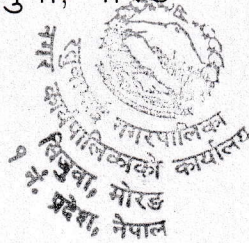 नगरपालिका
नगर कार्यपालिकाको कार्यालय
सिजुवा, मोरङ
१ नं. प्रदेश, नेपाल